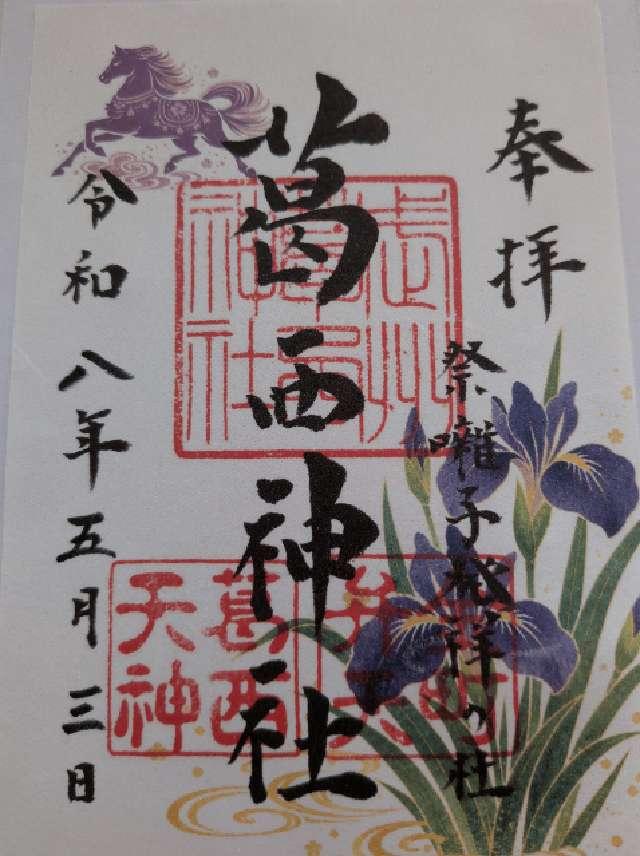 奉拝
祭囃子発祥の社
葛西神社
令和八年五月三日
武州
葛西
神社
葛西
天神
弁天